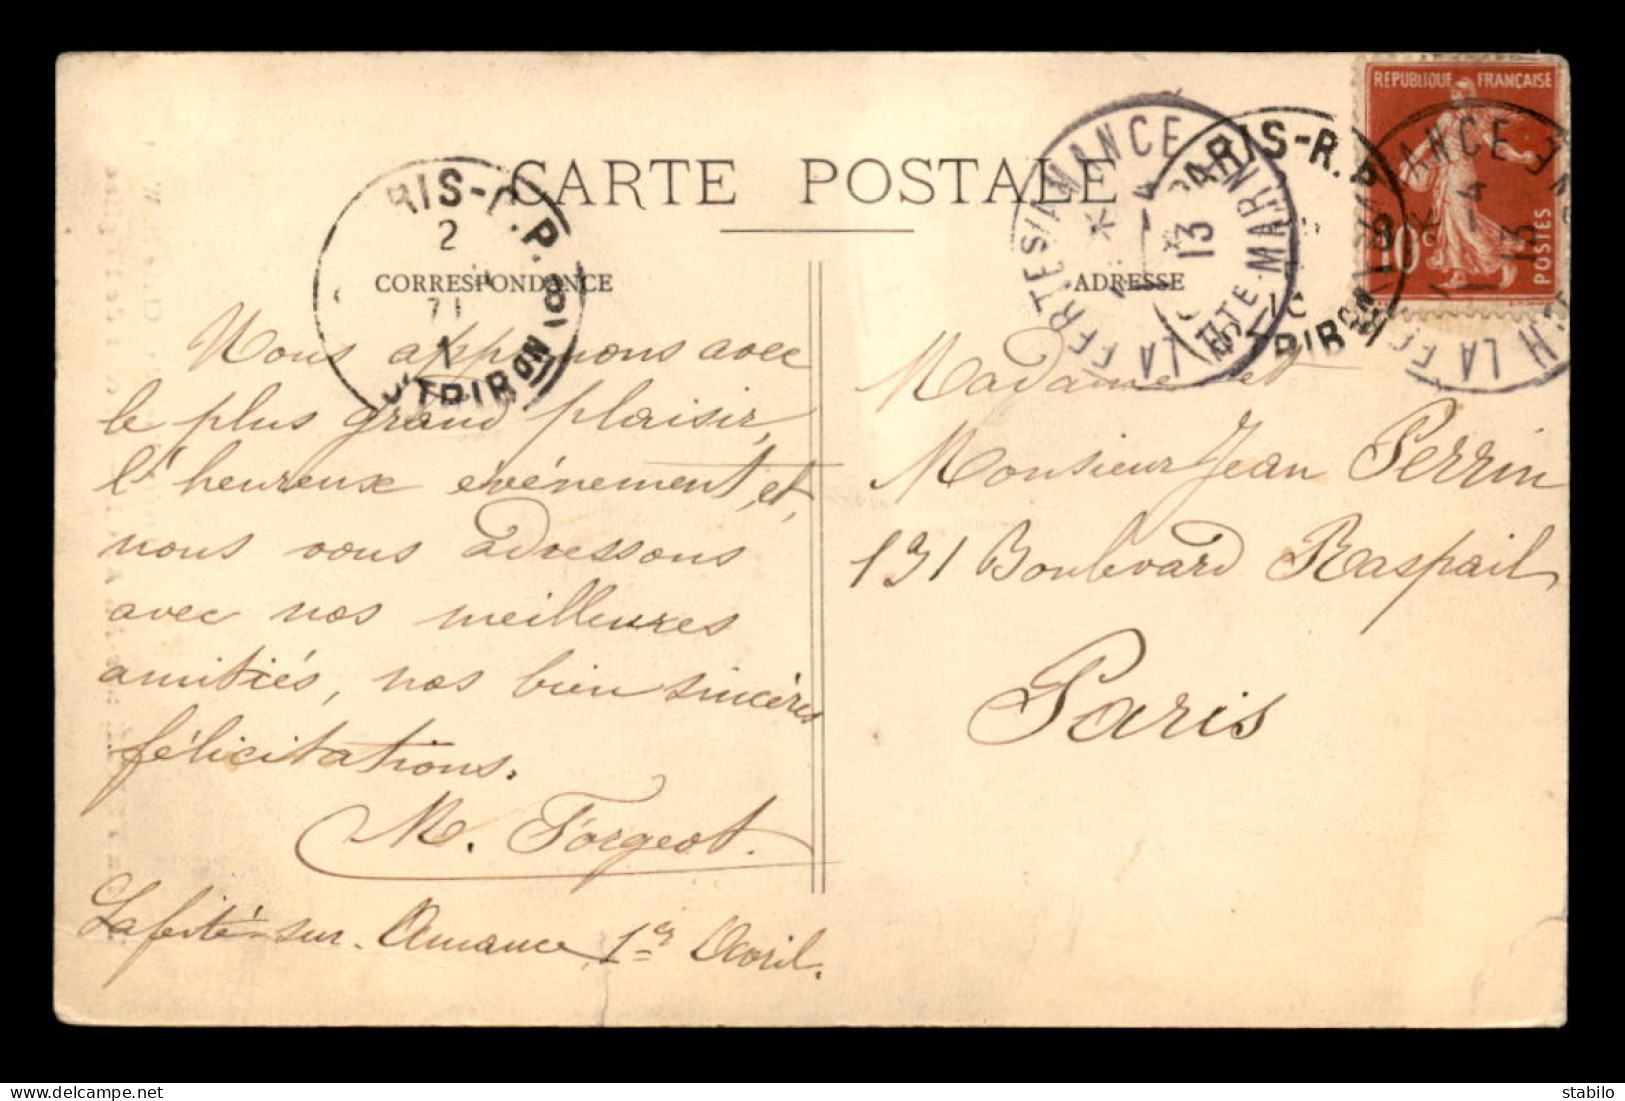 CARTE POSTALE
CORRESPONDANCE
Nous apprenons avec
le plus grand plaisir,
l'heureux événement, et,
nous vous adressons
avec nos meilleures
amitiés, nos bien sincères
félicitations.
M. Forgeot.
Laferté-sur-Amance, 1er Avril.
ADRESSE
Madame et
Monsieur Jean Perrin
131 Boulevard Raspail
Paris
REPUBLIQUE FRANÇAISE
10c
POSTES
LA FERTE S/AMANCE
HTE MARNE
1-4
13
PARIS-R.P.
DISTRIBON
2
DISTRIBON
delcampe.net
stabilo